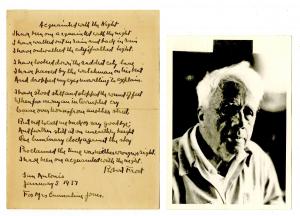 Acquainted with the Night
I have been one acquainted with the night.
I have walked out in rain and back in rain
I have outwalked the city light.
I have looked down the saddest city lane
I have passed by the watchman on his beat
And dropped my eyes unwilling to explain.
I have stood still and stopped the sound of feet
When far away an interrupted cry
Came over houses from another street
But not to call me back or say goodbye;
And further still at an unearthly height
One luminary clock against the sky
Proclaimed the time was neither wrong nor right.
I have been one acquainted with the night.
Robert Frost
San Antonio
January 3 1937
For Mrs Jones.